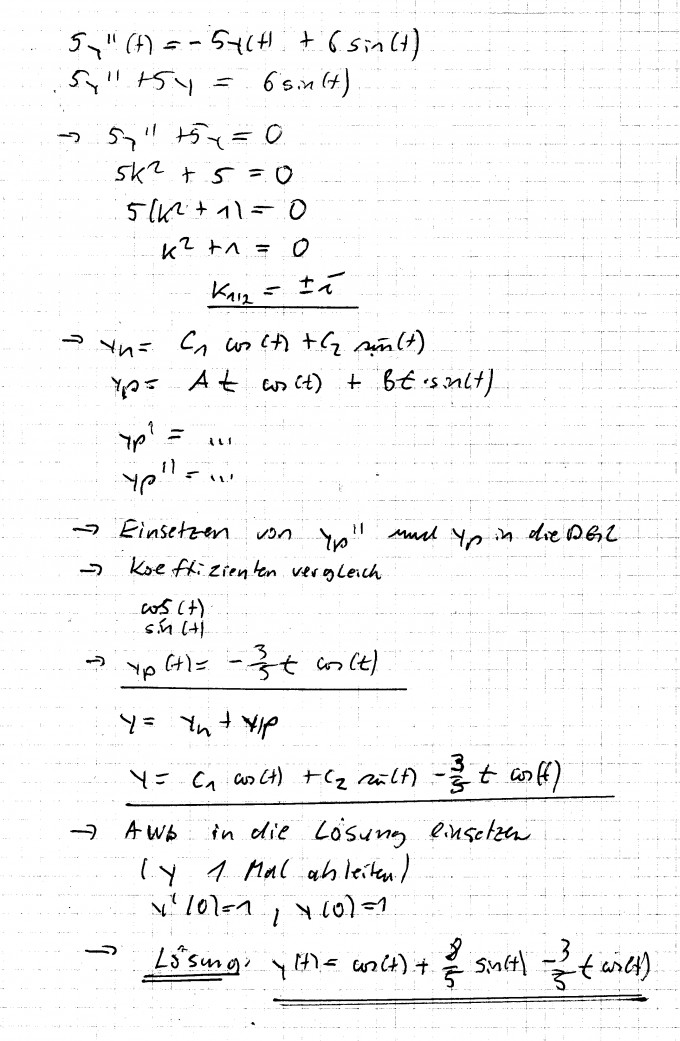 5y''(t) = -5y(t) + 6 sin(t)
5y'' + 5y = 6 sin(t)
→ 5y'' + 5y = 0
5k² + 5 = 0
5(k² + 1) = 0
k² + 1 = 0
k₁,₂ = ± i
→ yₕ = C₁ cos(t) + C₂ sin(t)
yₚ = A t cos(t) + B t · sin(t)
yₚ' = ...
yₚ'' = ...
→ Einsetzen von yₚ'' und yₚ in die DGL
→ Koeffizientenvergleich
cos(t)
sin(t)
→ yₚ(t) = - 3/5 t cos(t)
y = yₕ + yₚ
y = C₁ cos(t) + C₂ sin(t) - 3/5 t cos(t)
→ AWB in die Lösung einsetzen
(y 1 Mal ableiten)
y'(0)=1 , y(0)=1
→ Lösung: y(t) = cos(t) + 8/5 sin(t) - 3/5 t cos(t)